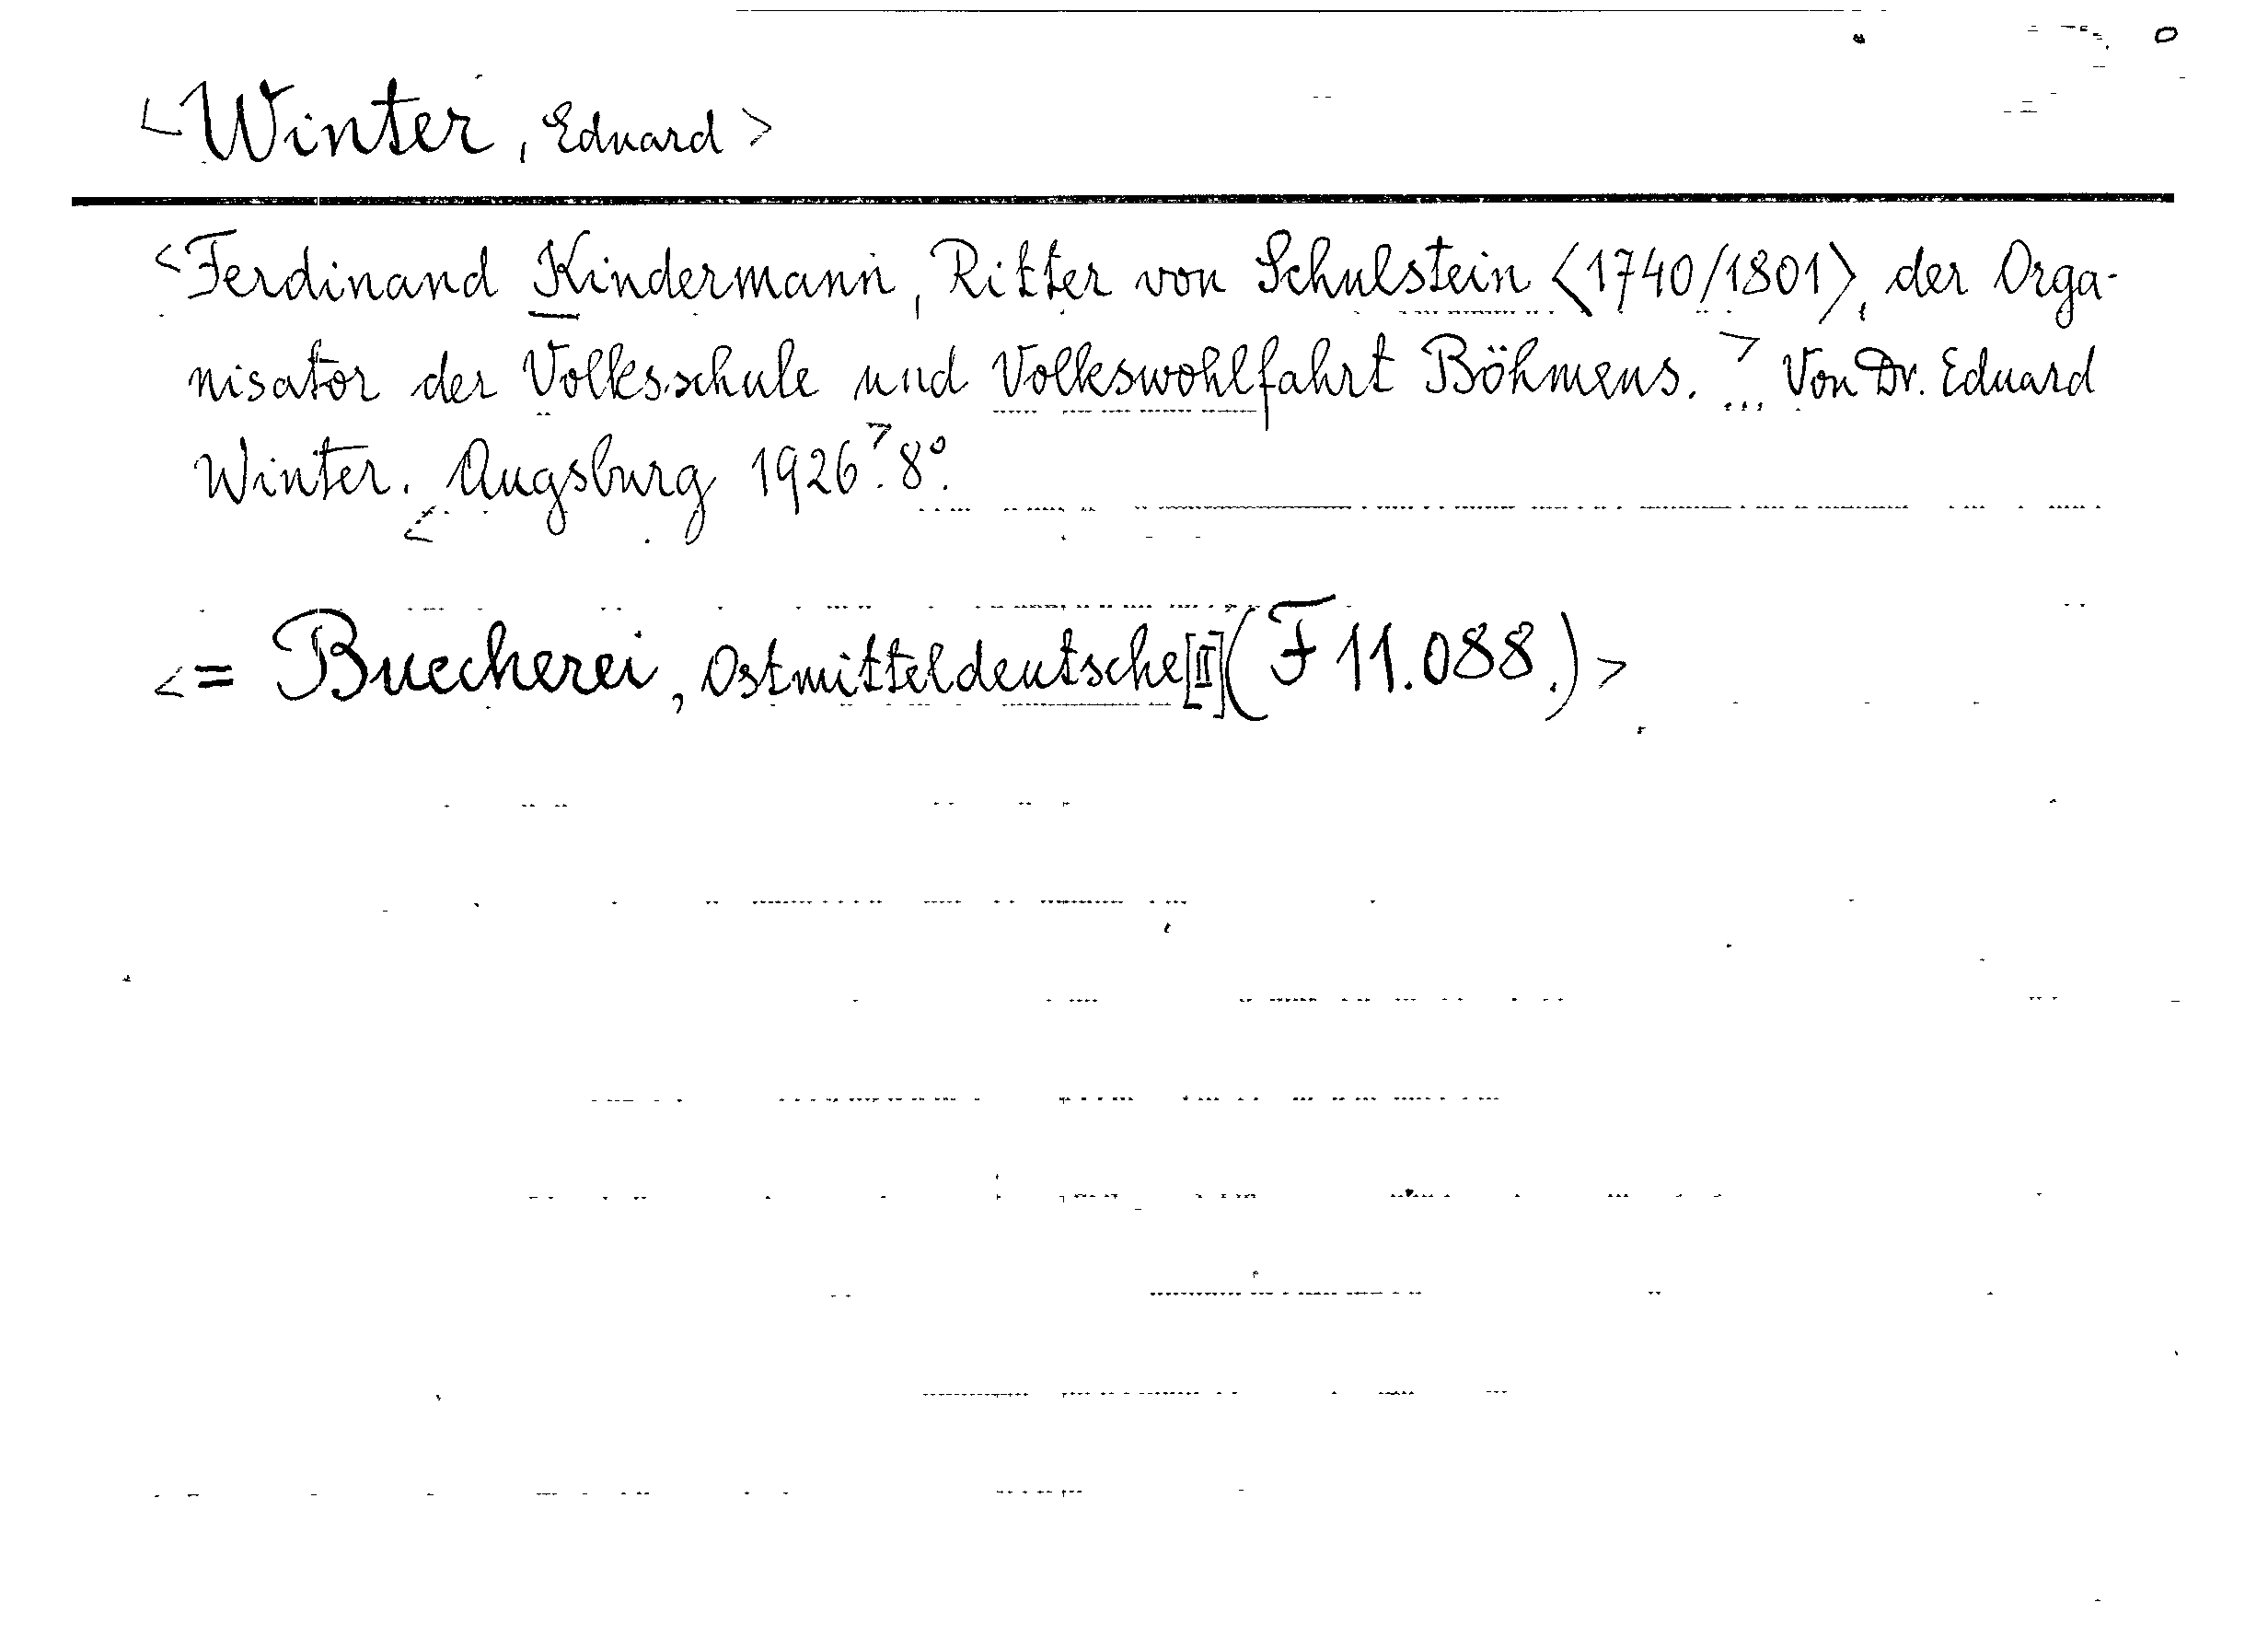 <Winter, Eduard>
<Ferdinand Kindermann, Ritter von Schulstein <1740/1801>, der Orga-
nisator der Volksschule und Volkswohlfahrt Böhmens.> ... Von Dr. Eduard
Winter. <Augsburg 1926>. 8°.
<= Buecherei, Ostmitteldeutsche [II] (F 11.088.)>